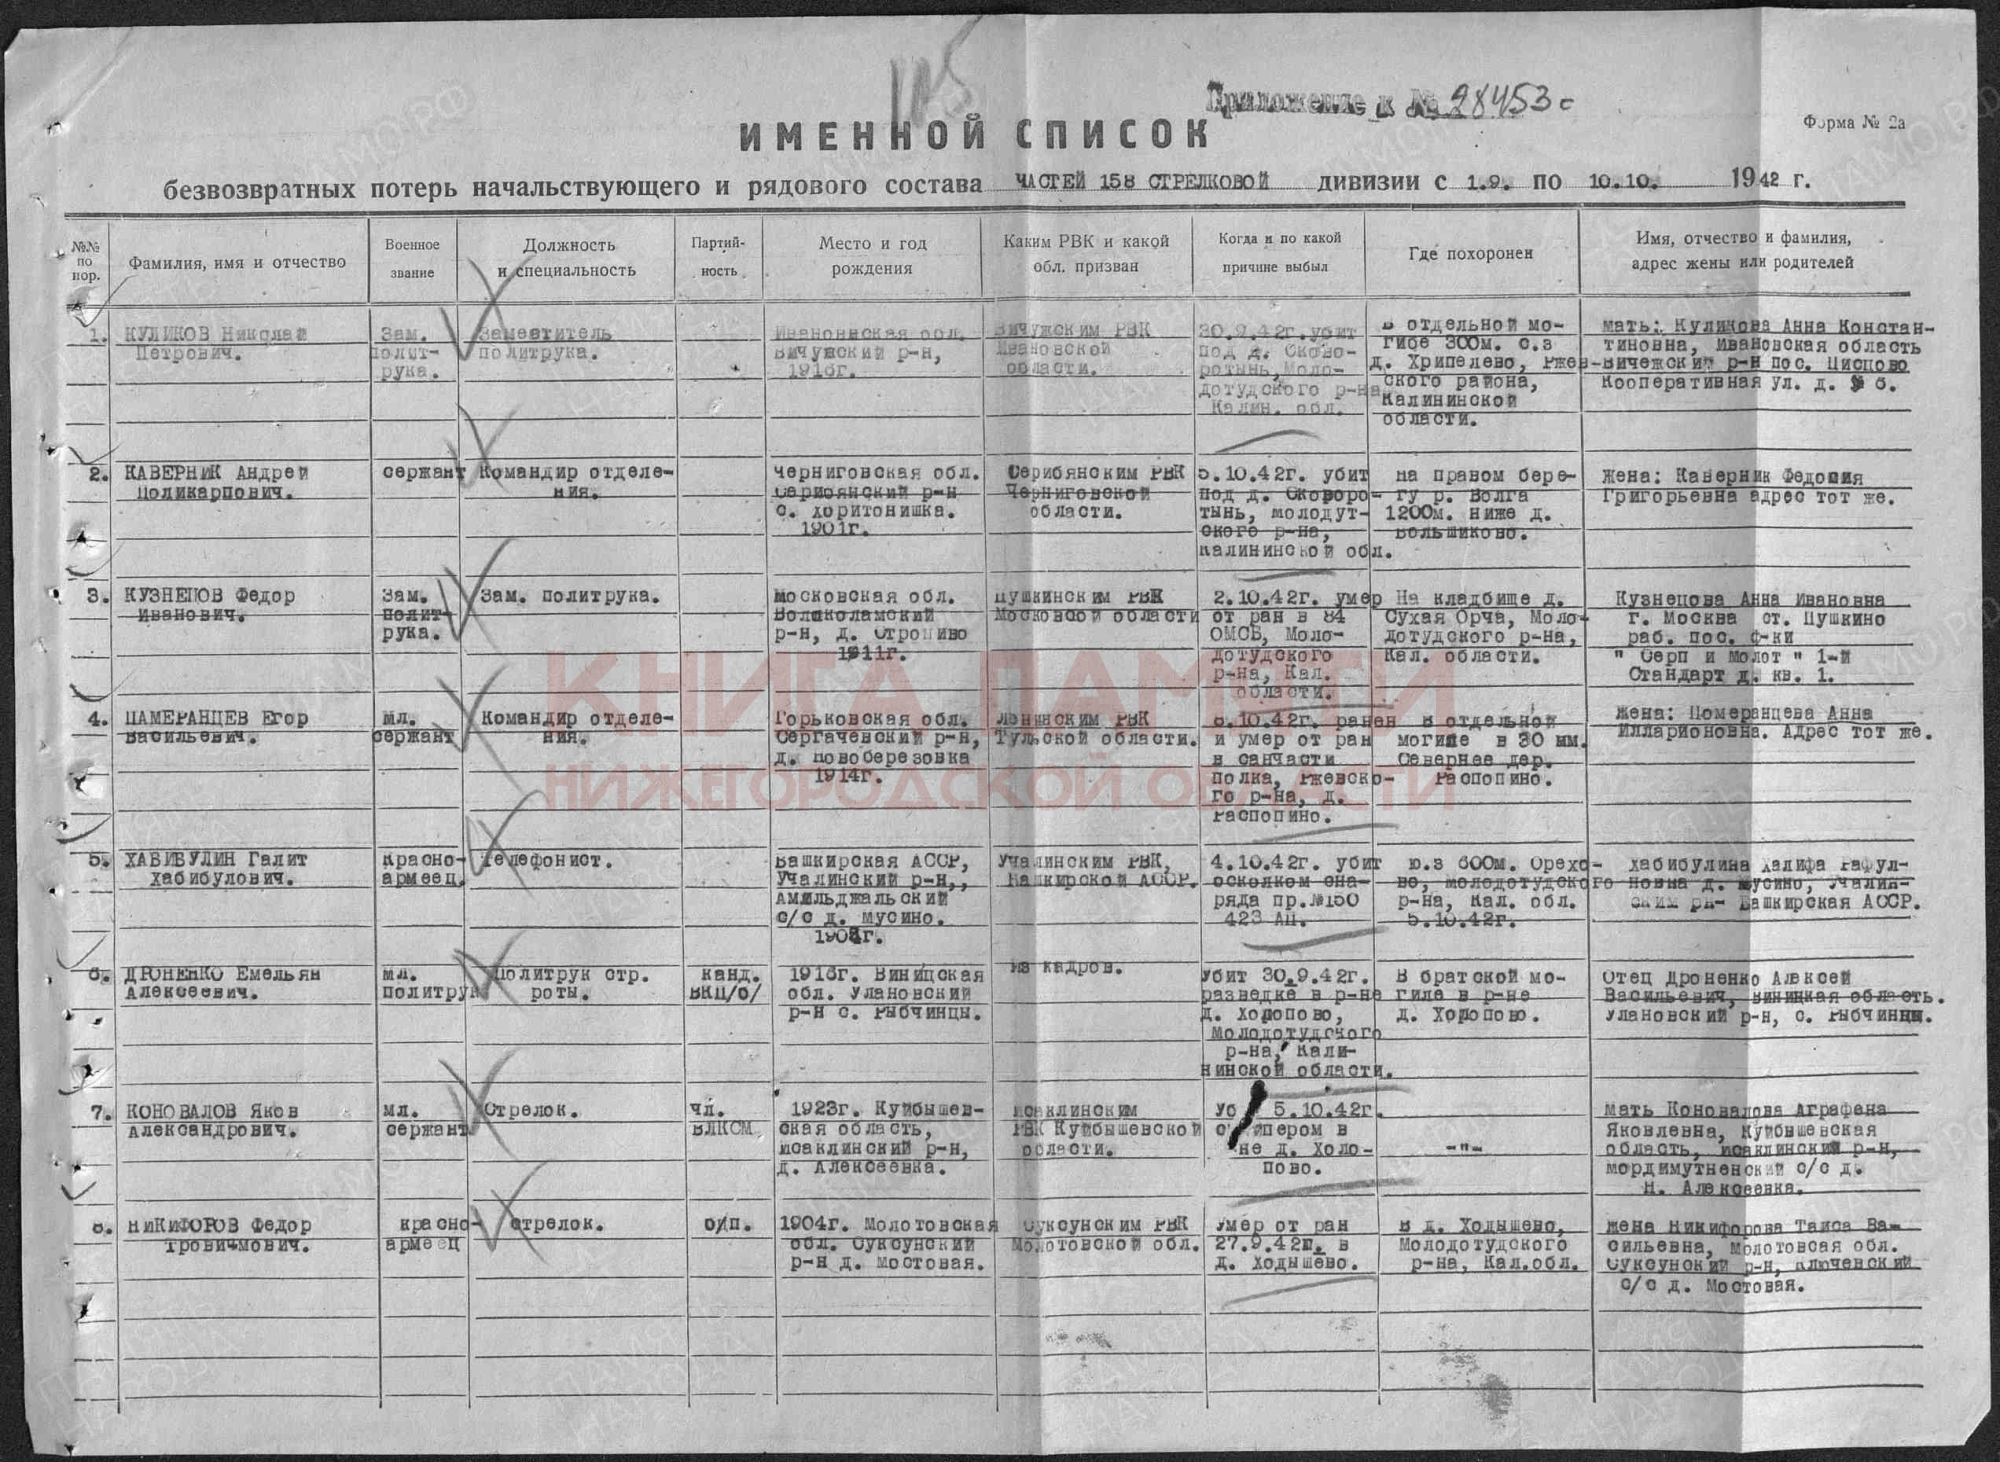 Приложение к № 28453с
ИМЕННОЙ СПИСОК
Форма № 2а
безвозвратных потерь начальствующего и рядового состава ЧАСТЕЙ 158 СТРЕЛКОВОЙ дивизии с 1.9. по 10.10. 1942 г.
№№ по пор.
Фамилия, имя и отчество
Военное звание
Должность и специальность
Партий-ность
Место и год рождения
Каким РВК и какой обл. призван
Когда и по какой причине выбыл
Где похоронен
Имя, отчество и фамилия, адрес жены или родителей
1.
КУЛИКОВ Николай
Петрович.
Зам.
полит-
рука.
Заместитель
политрука.
Ивановнская обл.
Вичужский р-н,
1918г.
Вичужским РВК
Ивановской
области.
30.9.42г. убит
под д. Сково-
ротынь, Моло-
дотудского р-на
Калин. обл.
В отдельной мо-
гибе 300м. с.з
д. Хрипелево, Ржев-
ского района,
Калининской
области.
мать: Куликова Анна Констан-
тиновна, Ивановская область
Вичежский р-н пос. Писцово
Кооперативная ул. д. 6.
2.
КАВЕРНИК Андрей
Поликарпович.
сержант
Командир отделе-
ния.
Черниговская обл.
Серибянский р-н
с. Хоритонишка.
1901г.
Серибянским РВК
Черниговской
области.
5.10.42г. убит
под д. Сковоро-
тынь, молодут-
ского р-на,
Калининской обл.
на правом бере-
гу р. Волга
1200м. ниже д.
Большиково.
жена: Каверник Федосия
Григорьевна адрес тот же.
3.
КУЗНЕЦОВ Федор
Иванович.
Зам.
полит-
рука.
Зам. политрука.
Московская обл.
Волоколамский
р-н, д. Стропиво
1911г.
Пушкинским РВК
Московсой области
2.10.42г. умер
от ран в 84
ОМСБ, Моло-
дотудского
р-на, Кал.
области.
На кладбище д.
Сухая Орча, Моло-
дотудского р-на,
Кал. области.
Кузнецова Анна Ивановна
г. Москва ст. Пушкино
раб. пос. ф-ки
" Серп и молот " 1-й
Стандарт д. кв. 1.
4.
ПАМЕРАНЦЕВ Егор
Васильевич.
мл.
сержант
Командир отделе-
ния.
Горьковская обл.
Сергачевский р-н,
д. Новоберезовка
1914г.
Ленинским РВК
Тульской области.
6.10.42г. ранен
и умер от ран
в санчасти
полка, Ржевско-
го р-на, д.
Распопино.
в отдельной
могиле в 30 мм.
Севернее дер.
Распопино.
жена: Померанцева Анна
Илларионовна. Адрес тот же.
5.
ХАБИБУЛИН Галит
Хабибулович.
Красно-
армеец.
Телефонист.
Башкирская АССР,
Учалинский р-н,,
Амильджальский
с/с д. Мусино.
1908г.
Учалинским РВК,
Башкирской АССР.
4.10.42г. убит
осколком сна-
ряда пр.№150
423 АП.
ю.з 600м. Орехо-
во, молодотудского
р-на, Кал. обл.
5.10.42г.
хабибулина Халифа Рафул-
новна д. Мусино, Учалин-
ским рн- Башкирская АССР.
6.
ДРОНЕНКО Емельян
Алексеевич.
мл.
политрук
Политрук стр.
роты.
канд.
ВКП/б/
1918г. Виницская
обл. Улановский
р-н с. Рыбчинцы.
из кадров.
Убит 30.9.42г.
разведке в р-не
д. Холопово,
Молодотудского
р-на, Кали-
нинской области.
В братской мо-
гиле в р-не
д. Холопово.
Отец Дроненко Алексей
Васильевич, Виницкая область.
Улановский р-н, с. Рыбчинцы.
7.
КОНОВАЛОВ Яков
Александрович.
мл.
сержант
Стрелок.
чл.
ВЛКСМ
1923г. Куйбышев-
ская область,
Исаклинский р-н,
д. Алексеевка.
Исаклинским
РВК Куйбышевской
области.
Уб 5.10.42г.
с йпером в
не д. Холо-
пово.
-"-
мать Коновалова Аграфена
Яковлевна, Куйбышевская
область, Исаклинский р-н,
мордимутненский с/с д.
Н. Алексеевка.
8.
НИКИФОРОВ Федор
Тровичмович.
красно-
армеец
Стрелок.
б/п.
1904г. Молотовская
обл. Суксунский
р-н д. Мостовая.
Суксунским РВК
Молотовской обл.
умер от ран
27.9.42г. в
д. Ходышево.
В д. Ходышево,
Молодотудского
р-на, Кал.обл.
жена Никифорова Таиса Ва-
сильевна, Молотовсая обл.
Суксунский р-н, Ключевский
с/с д. Мостовая.
КНИГА ПАМЯТИ
НИЖЕГОРОДСКОЙ ОБЛАСТИ